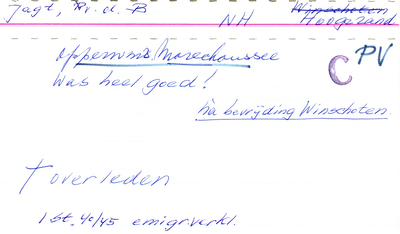 Jagt, Kr. d. B
NH
Winschoten
Hoogezand
opperwm. Marechaussee
Was heel goed!
C
PV
na bevrijding Winschoten.
† overleden
1 St. 40/45 emigr.verkl.